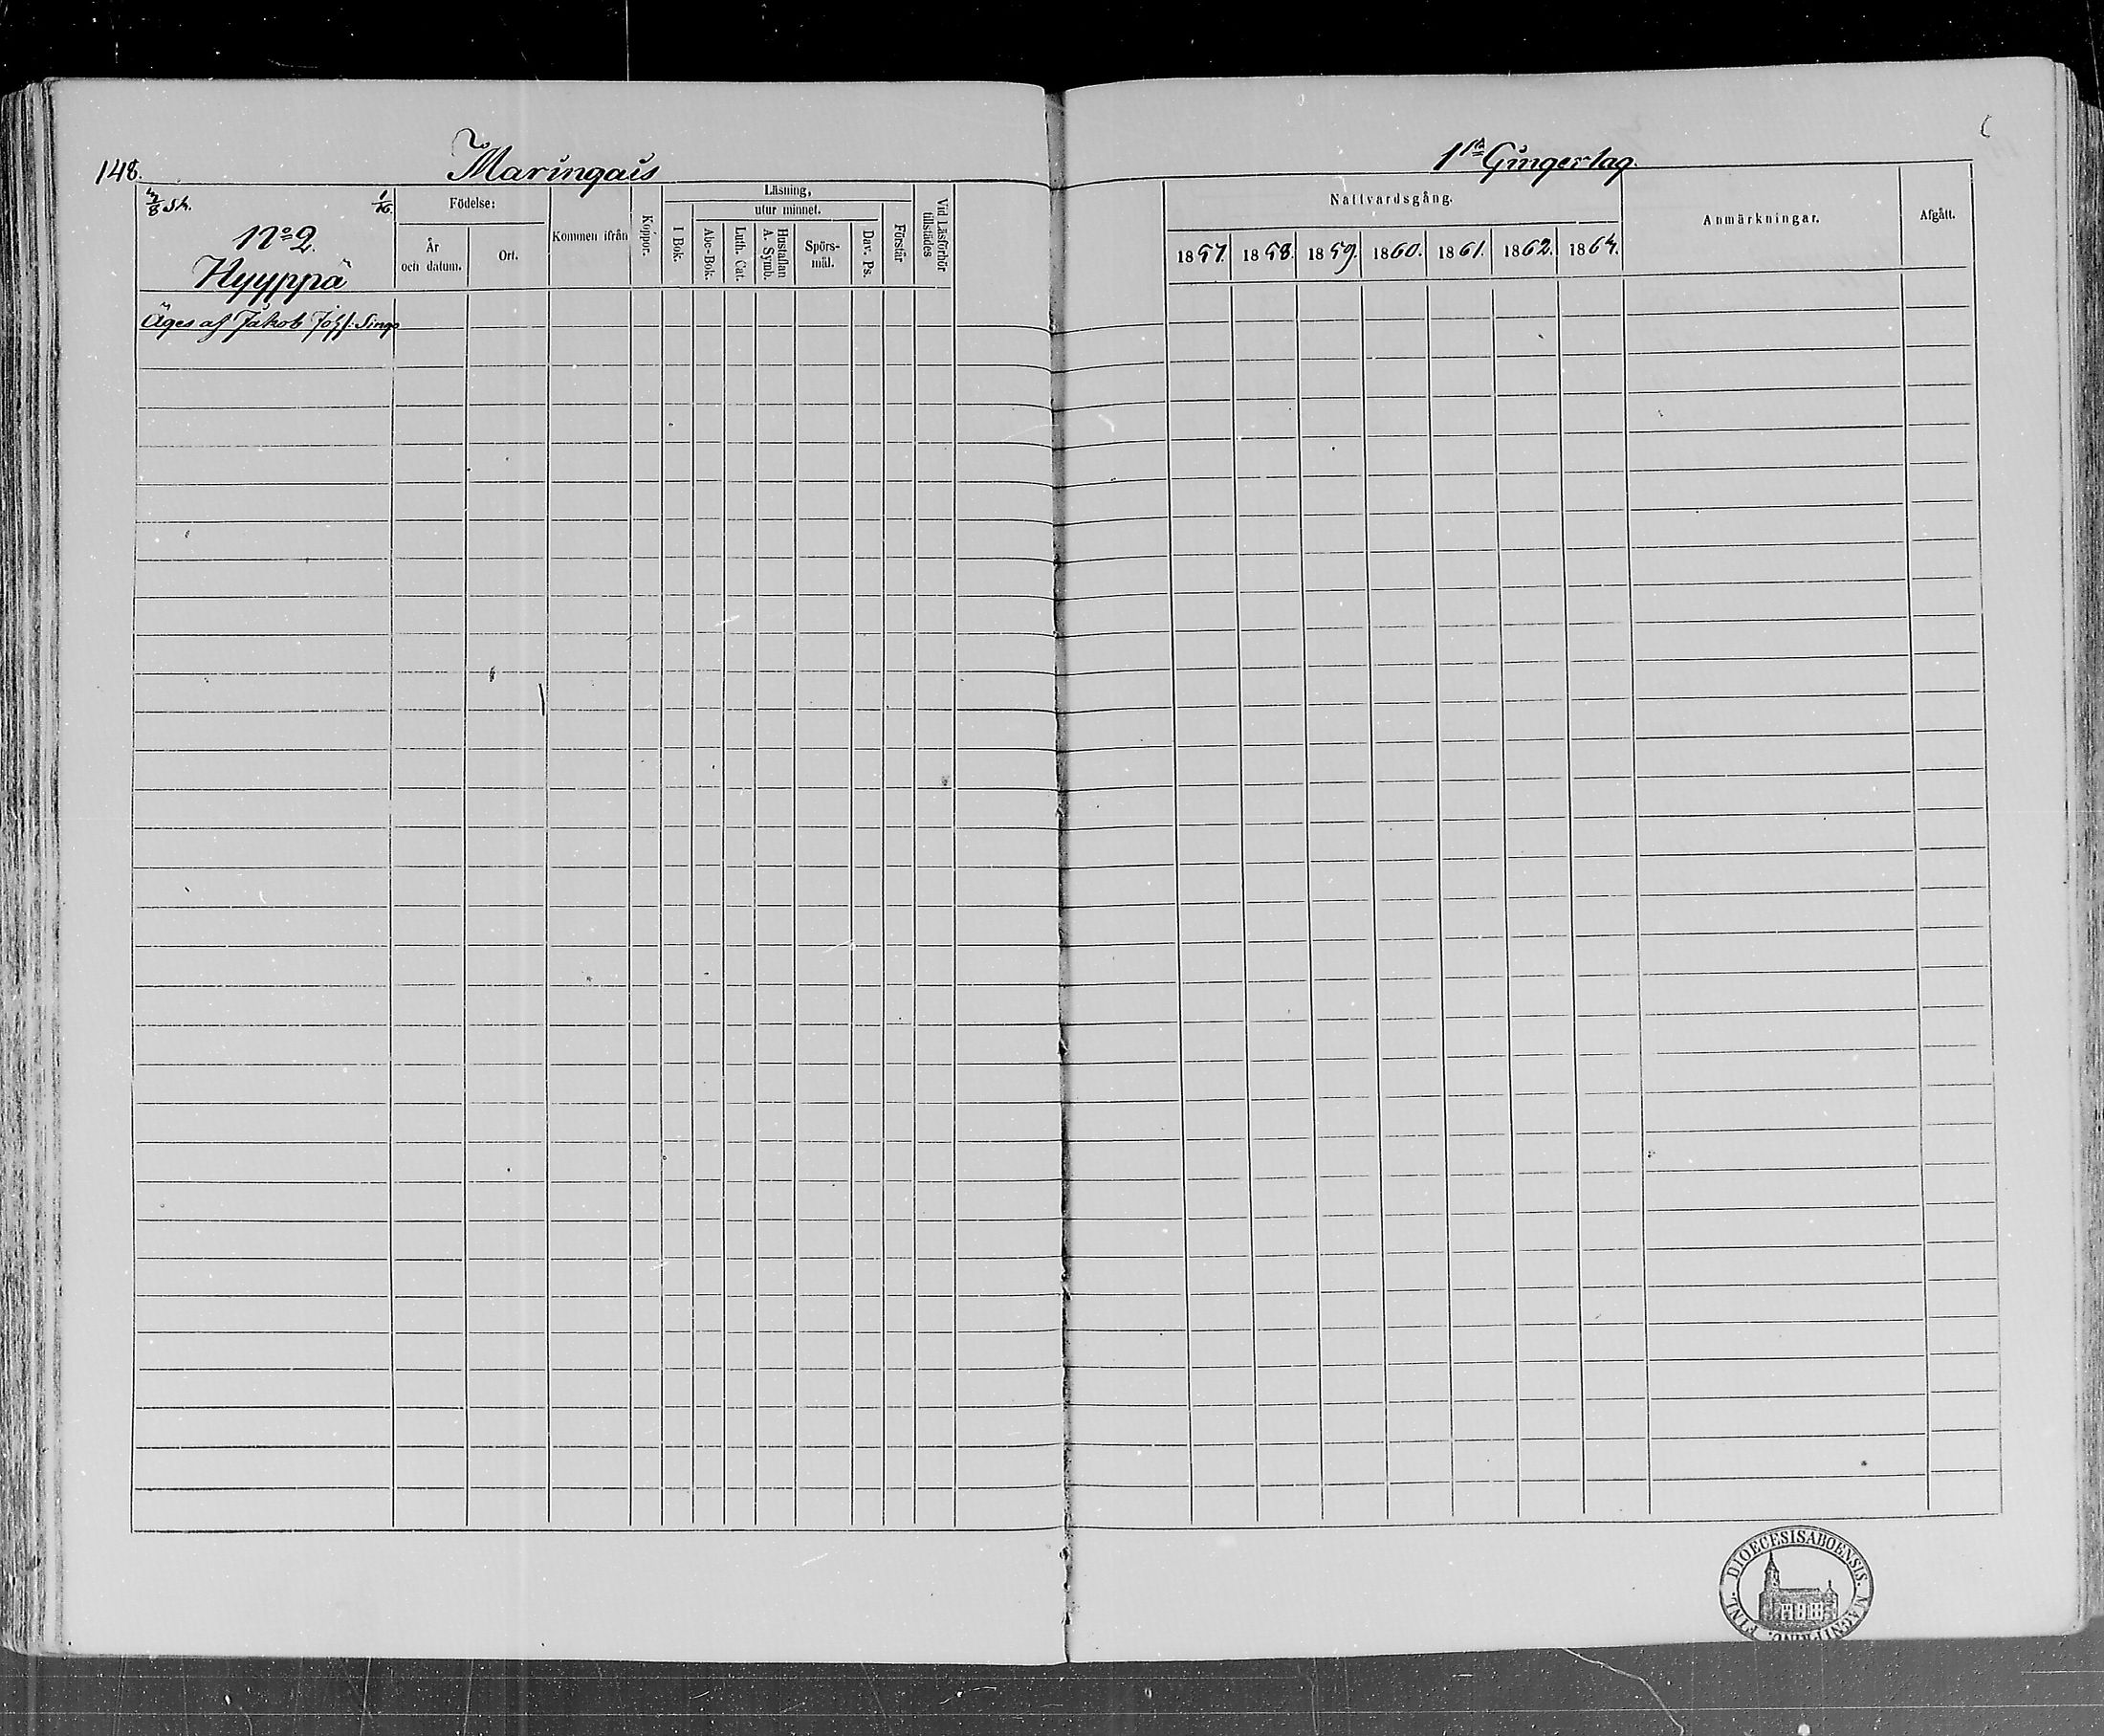 148.
Maringais
1sta Gingerlag.
2/8 sk. 1/16.
No 2.
Hyyppä
Äges af Jakob Johs: Singo
Födelse:
År och datum.
Ort.
Kommen ifrån
Koppor.
Läsning,
utur minnet.
I Bok.
Abc-Bok.
Luth. Cat.
Hustaflan A. Symb.
Spörs-mål.
Dav. Ps.
Förstår
Vid Läsförhör tillstädes
Nattvardsgång.
1857. 1858. 1859. 1860. 1861. 1862. 1864.
Anmärkningar.
Afgått.
DIOECESIS ABOENSIS. MAGNI PRINC. FINL.